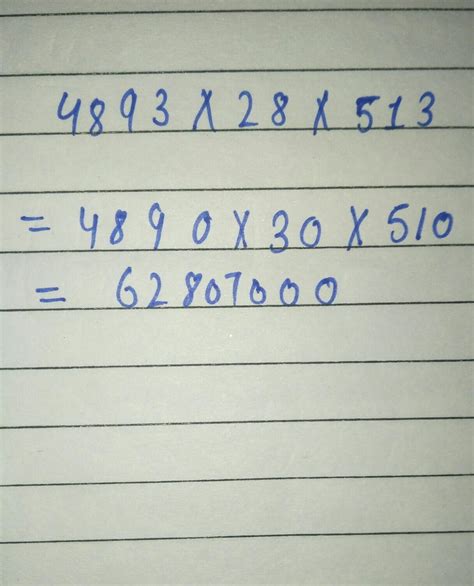 4893 X 28 X 513
= 4890 X 30 X 510
= 62807000